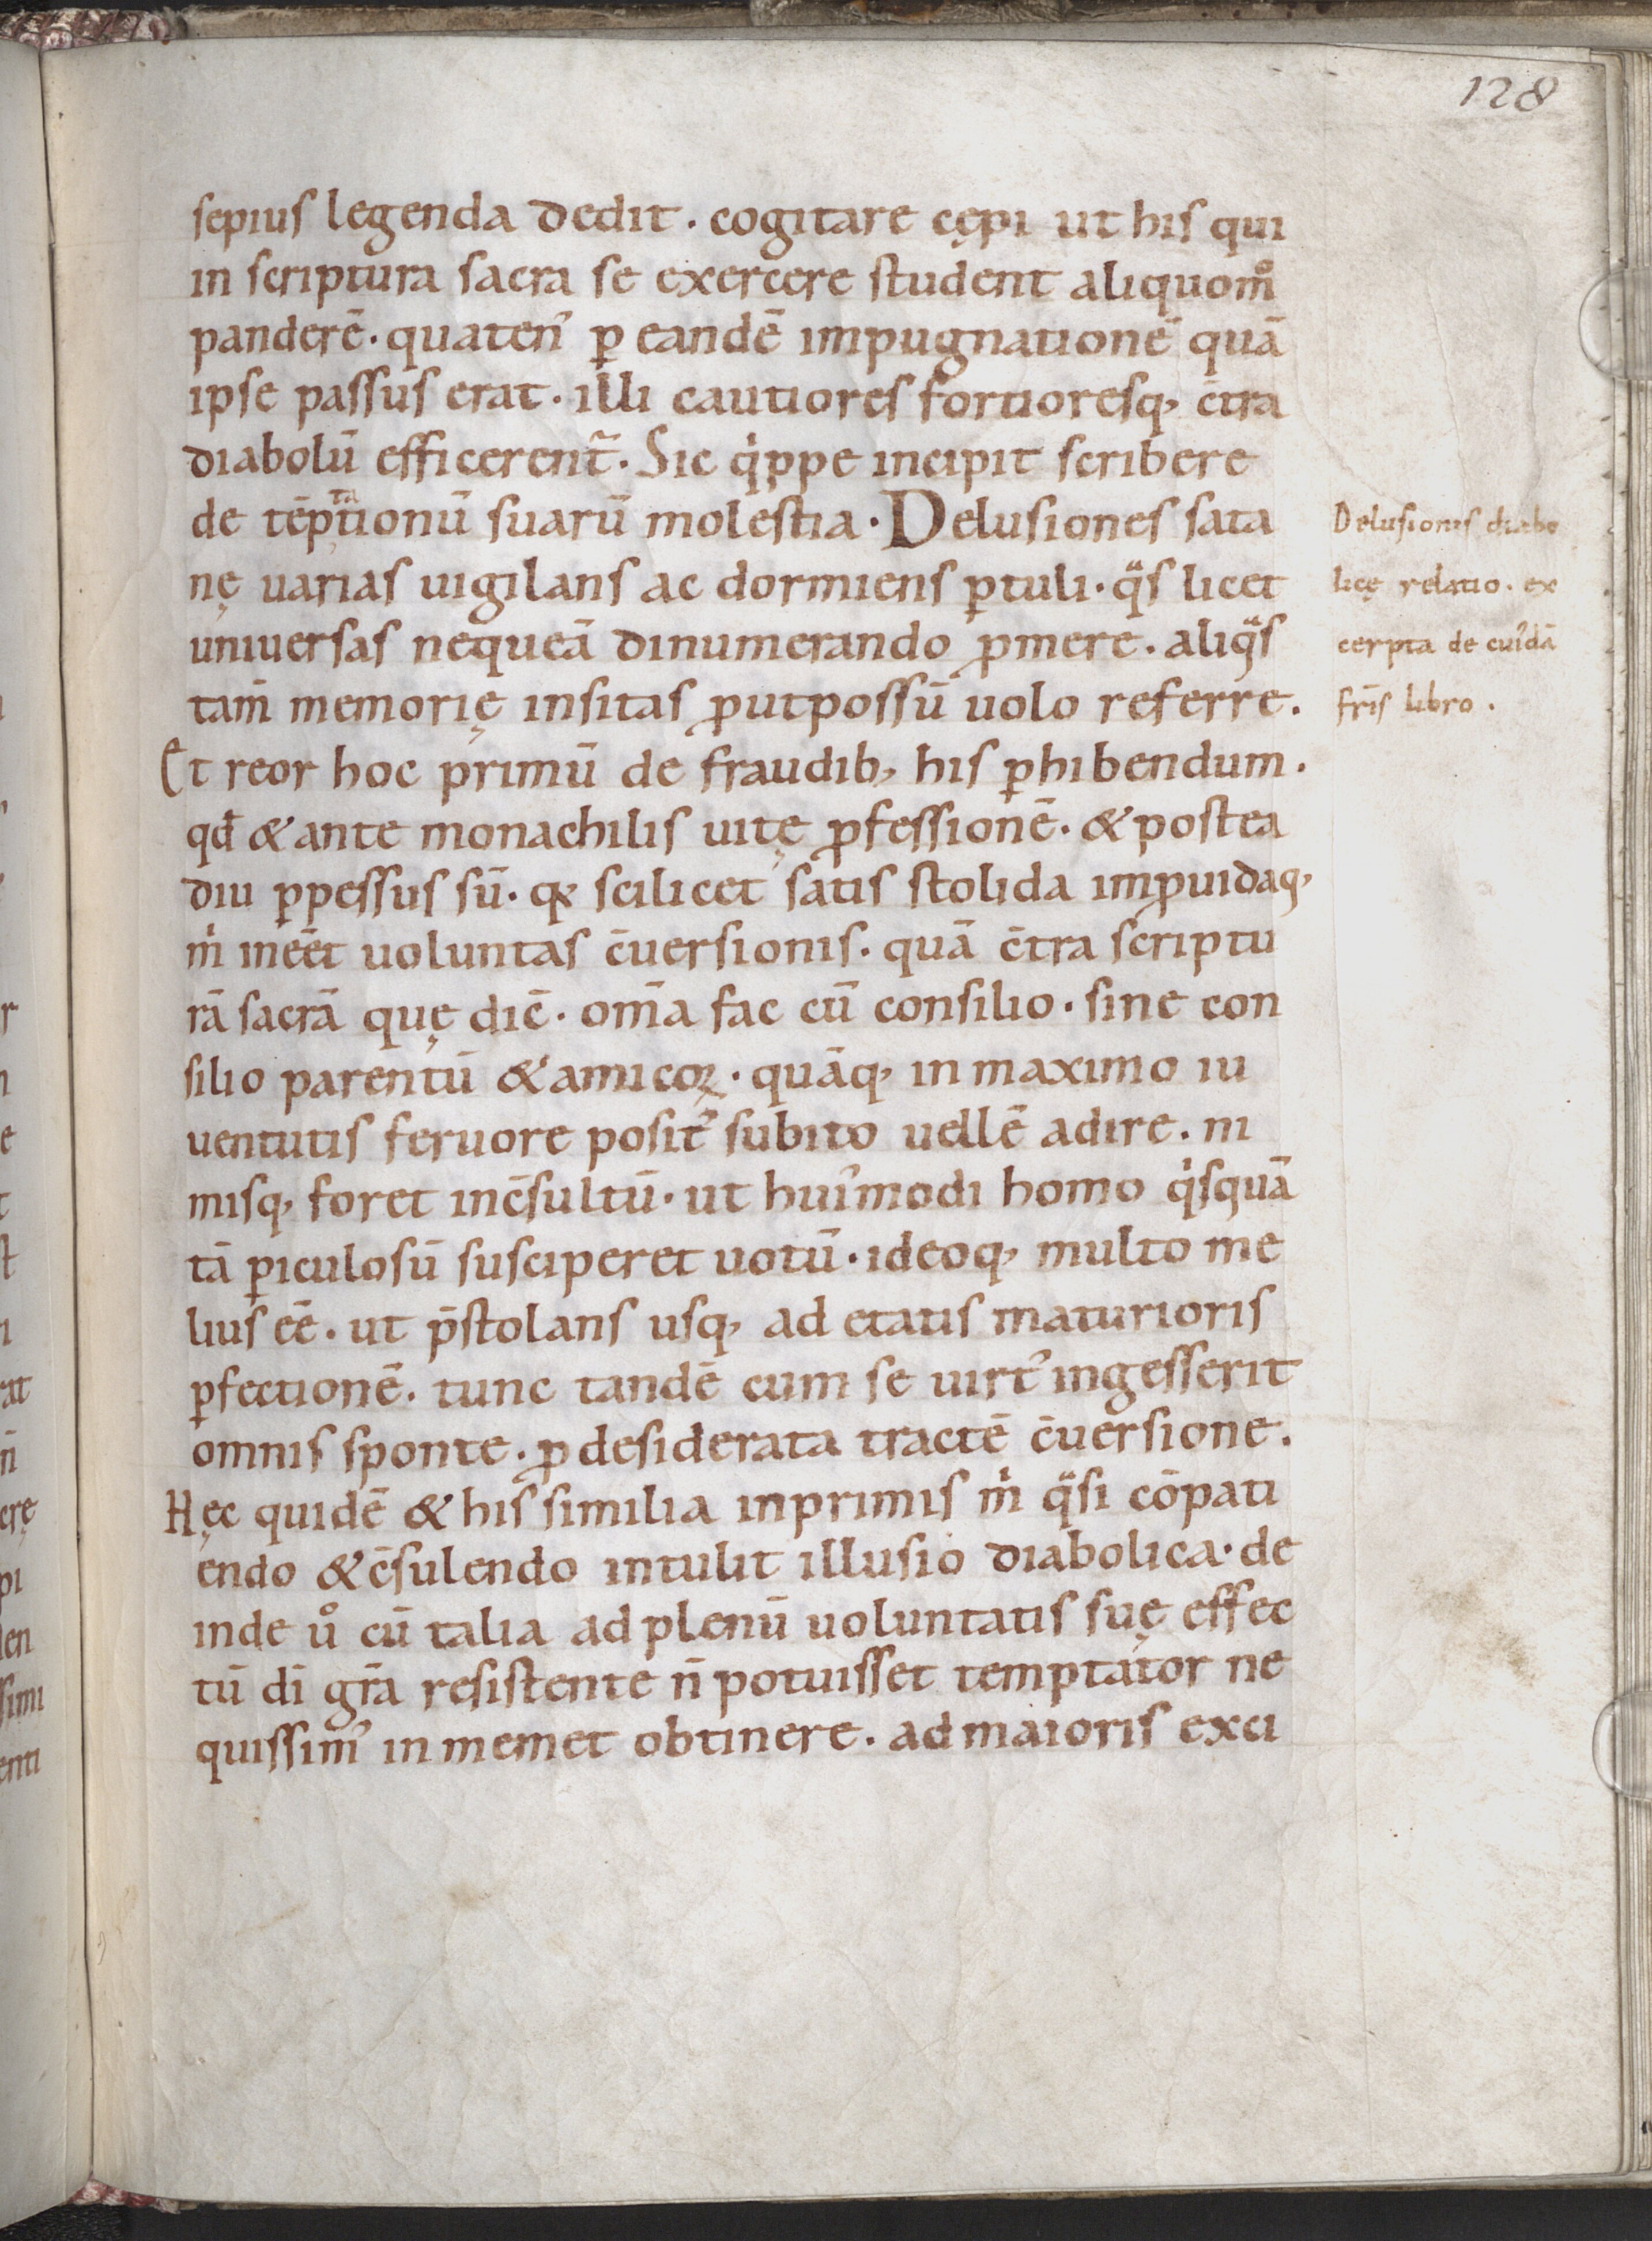 128
sepius legenda dedit · cogitare cępi ut his qui
in scriptura sacra se exercere student aliquom̊
panderē · quaten᾿ ꝑ eandē impugnationē quā
ipse passus erat · illi cautiores fortioresq, c̄tra
diabolū efficerent̃ · Sic qͥppe incipit scribere
de tēptͭᵃionū suarū molestia · Delusiones sata
nę uarias uigilans ac dormiens ꝑtuli · qͣs licet
uniuersas nequeā dinumerando ꝓmere . aliqͣs
tam̄ memorię insitas ꝓutpossū uolo referre .
Et reor hoc primū de fraudib, his ꝑhibendum .
qđ & ante monachilis uitę ꝓfessionē · & postea
diu ꝑpessus sū · qꝫ scilicet satis stolida imꝓuidaq,
mͥ ineēt uoluntas c̄uersionis · quā c̄tra scriptu
rā sacrā quę dic̄ · om̄a fac cū consilio · sine con
silio parentū & amicoꝝ · quāq, in maximo iu
uentutis feruore posit᾿ subito uellē adire . ni
misq, foret inc̄sultū · ut hui᾿modi homo qͥsquā
tā ꝑiculosū susciperet uotū · ideoq, multo me
lius eē . ut p̄stolans usq, ad etatis maturioris
ꝑfectionē . tunc tandē cum se uirt᾿ ingesserit
omnis sponte . ꝓ desiderata tractē c̄uersione .
Hęc quidē & his similia inprimis mͥ qͣsi cōpati
endo & c̄sulendo intulit illusio diabolica · de
inde ů cū talia ad plenū uoluntatis suę effec
tū dī gr̄a resistente n̄ potuisset temptator ne
quissim᾿ in memet obtinere . ad maioris exci
Delusionis diabo
licę relatio . ex
cerpta de cui᾿dā
fr̄is libro .